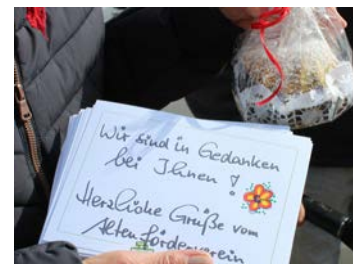 Wir sind in Gedanken
bei Ihnen!
Herzliche Grüße vom
Alten Förderverein